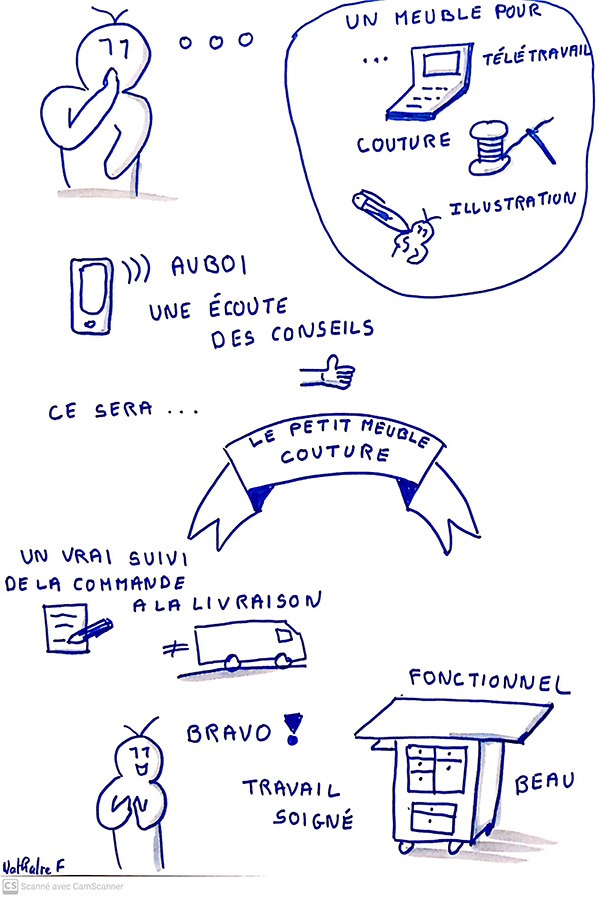 UN MEUBLE POUR
... TÉLÉTRAVAIL
COUTURE
ILLUSTRATION
AUBOI
UNE ÉCOUTE
DES CONSEILS
CE SERA ...
LE PETIT MEUBLE
COUTURE
UN VRAI SUIVI
DE LA COMMANDE
A LA LIVRAISON
FONCTIONNEL
BRAVO !
BEAU
TRAVAIL
SOIGNÉ
F
CS Scanné avec CamScanner